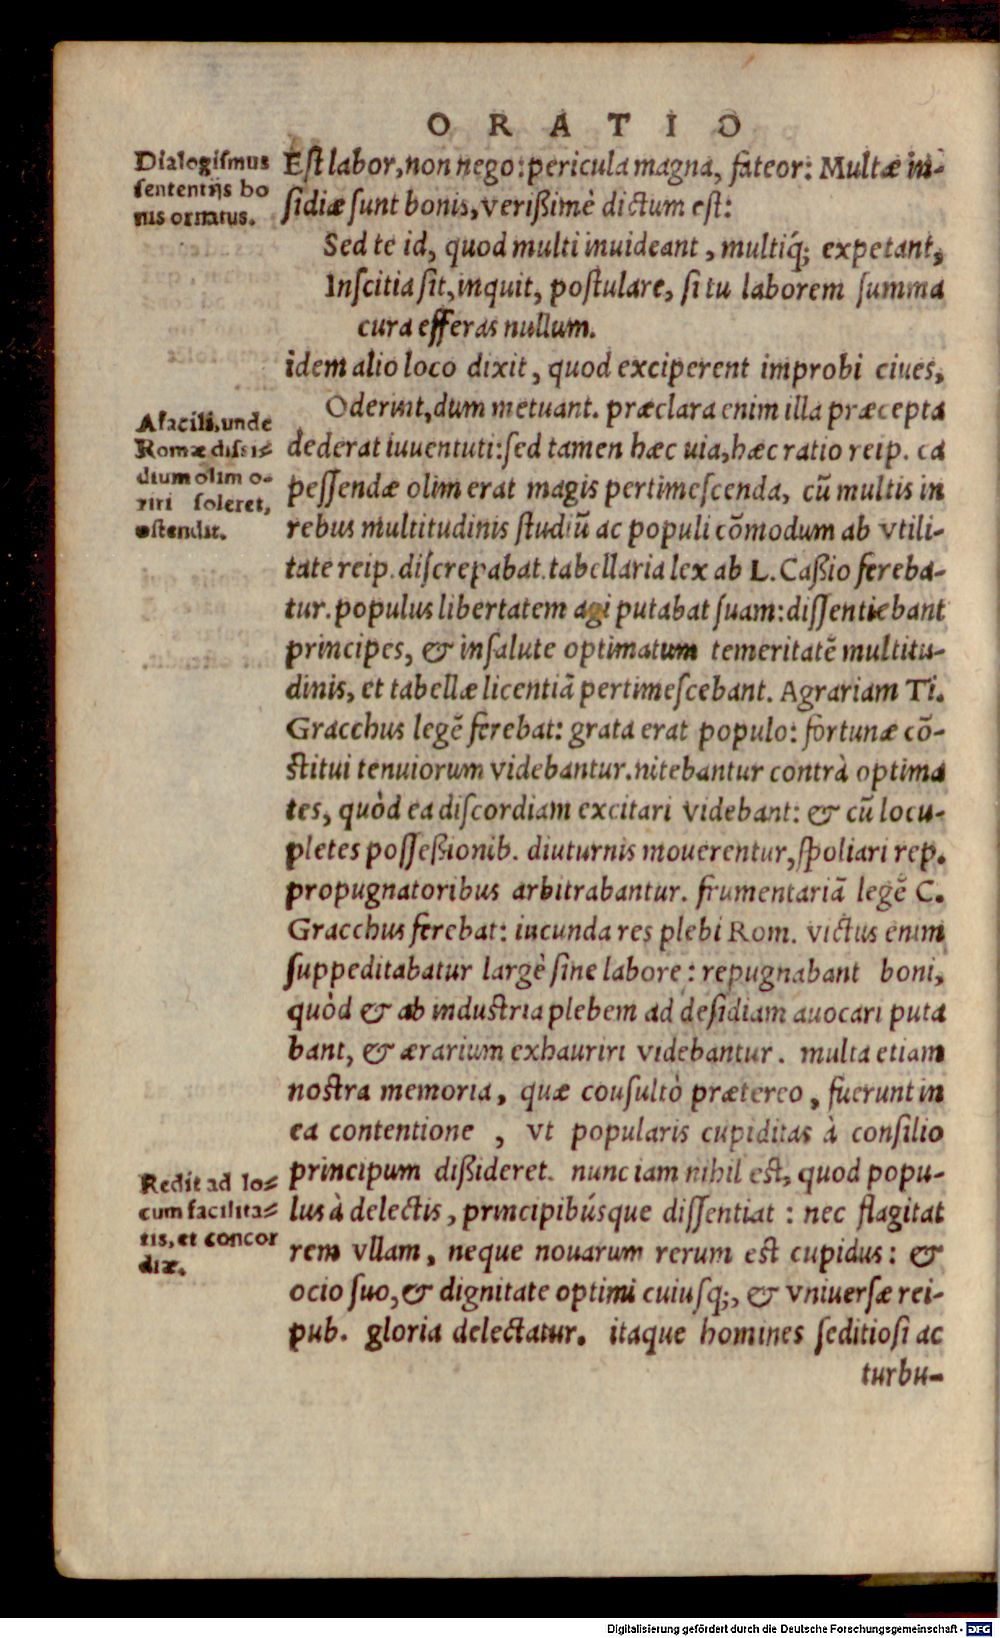 ORATIO
Dialogiſmus
ſententijs bo
nis ornatus.
Eſt labor, non nego: pericula magna, fateor: Multæ in-
ſidiæ ſunt bonis, verißimè dictum eſt:
Sed te id, quod multi inuideant, multiq́; expetant,
Inſcitia ſit, inquit, poſtulare, ſi tu laborem ſumma
cura efferas nullum.
idem alio loco dixit, quod exciperent improbi ciues,
A facili, unde
Romæ diſsi-
dium olim o-
riri ſoleret,
oſtendit.
Oderint, dum metuant. præclara enim illa præcepta
dederat iuuentuti: ſed tamen hæc uia, hæc ratio reip. ca
peſſendæ olim erat magis pertimeſcenda, cū multis in
rebus multitudinis ſtudiū ac populi cōmodum ab vtili-
tate reip. diſcrepabat. tabellaria lex ab L. Caßio fereba-
tur. populus libertatem agi putabat ſuam: diſſentiebant
principes, & in ſalute optimatum temeritatē multitu-
dinis, et tabellæ licentiā pertimeſcebant. Agrariam Ti.
Gracchus legē ferebat: grata erat populo: fortunæ cō-
ſtitui tenuiorum videbantur. nitebantur contrà optima
tes, quòd ea diſcordiam excitari videbant: & cū locu-
pletes poſſeßionib. diuturnis mouerentur, ſpoliari rep.
propugnatoribus arbitrabantur. frumentariā legē C.
Gracchus ferebat: iucunda res plebi Rom. victus enim
ſuppeditabatur largè ſine labore: repugnabant boni,
quòd & ab induſtria plebem ad deſidiam auocari puta
bant, & ærarium exhauriri videbantur. multa etiam
noſtra memoria, quæ conſultò prætereo, fuerunt in
ea contentione, vt popularis cupiditas à conſilio
Redit ad lo-
cum facilita-
tis, et concor
diæ.
principum dißideret. nunc iam nihil eſt, quod popu-
lus à delectis, principibúsque diſſentiat: nec flagitat
rem vllam, neque nouarum rerum eſt cupidus: &
ocio ſuo, & dignitate optimi cuiuſq;, & vniuerſæ rei-
pub. gloria delectatur. itaque homines ſeditioſi ac
turbu-
Digitalisierung gefördert durch die Deutsche Forschungsgemeinschaft - DFG